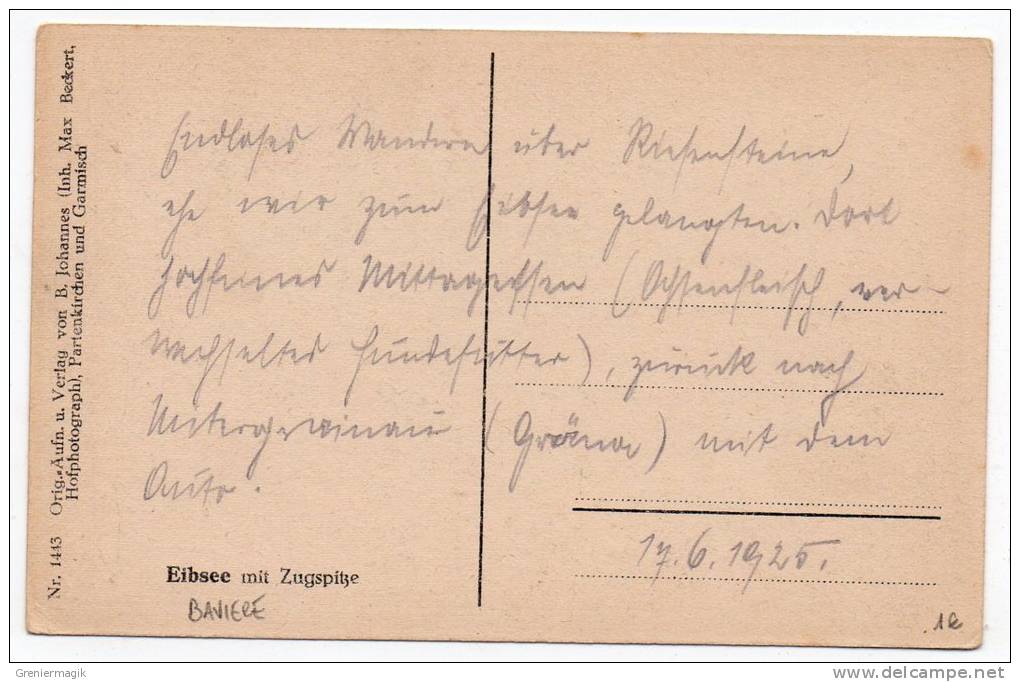 Nr. 1443 Orig.-Aufn. u. Verlag von B. Johannes (Inh. Max Beckert,
Hofphotograph), Partenkirchen und Garmisch
Endloses Wandern über Riesensteine,
ehe wir zum Eibsee gelangten. Dort
hochfeines Mittagessen (Ochsenfleisch, ver-
wechseltes Hundefutter), zurück nach
Untergrainau (Gröna) mit dem
Auto.
17.6.1925.
Eibsee mit Zugspitze
BAVIERE
1e
Greniermagik
www.delcampe.net